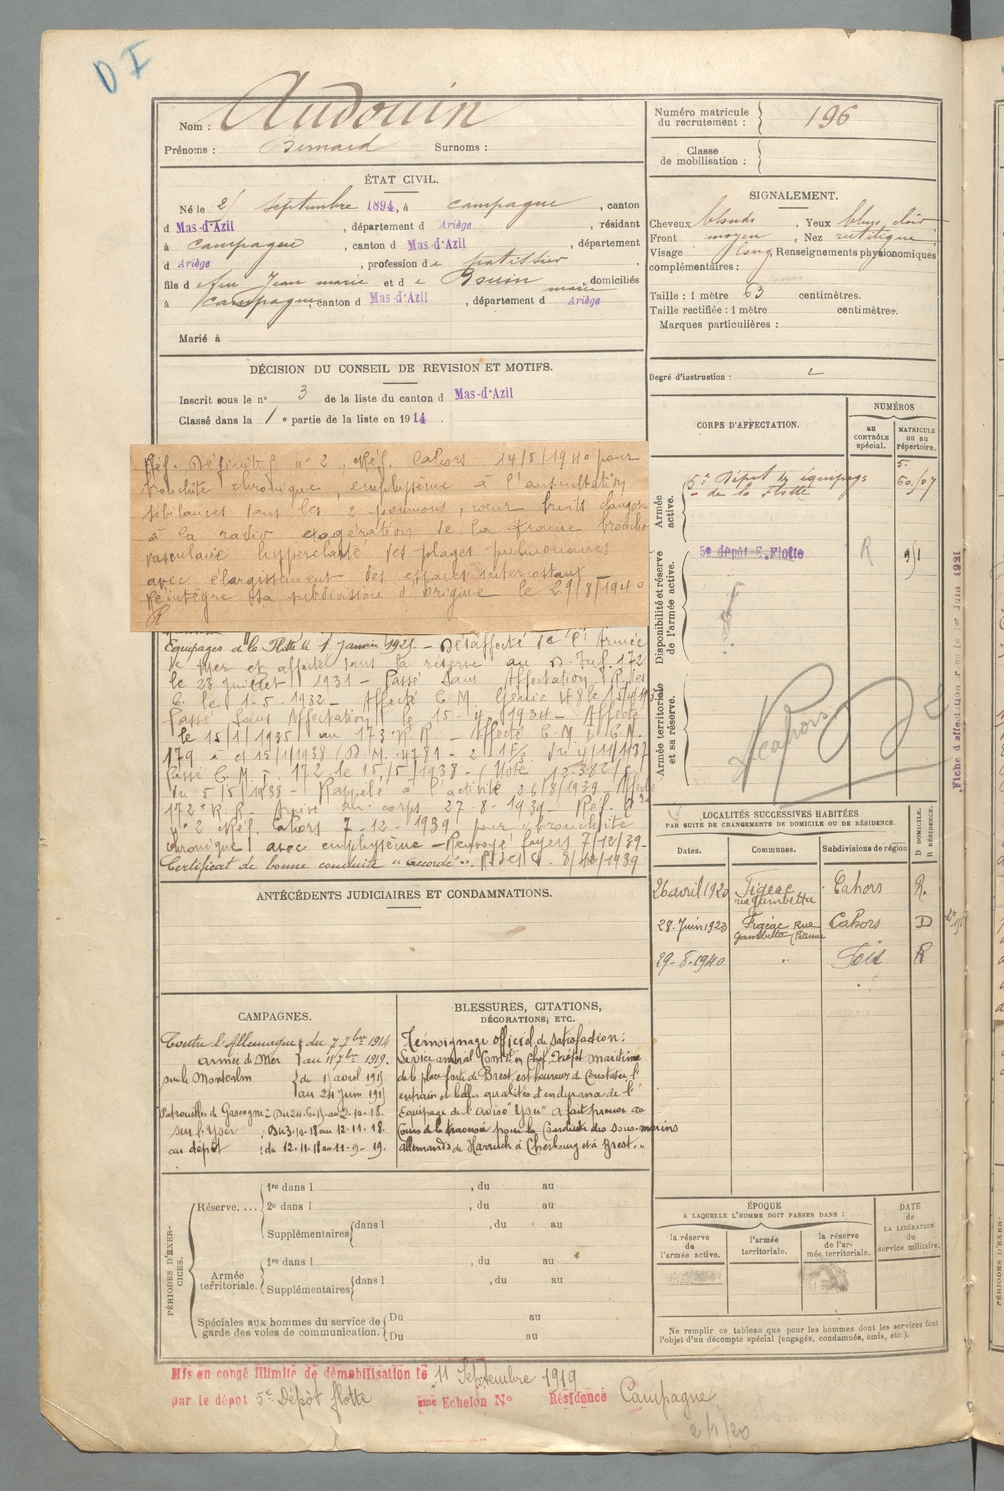 D I
Nom : Audouin
Prénoms : Bernard Surnoms :
Numéro matricule
du recrutement : 196
Classe
de mobilisation :
ÉTAT CIVIL.
Né le 2 septembre 1894, à Campagne, canton
d Mas-d'Azil, département d Ariège, résidant
à Campagne, canton d Mas-d'Azil, département
d Ariège, profession de patissier
fils de feu Jean marie et de marie domiciliés
à Campagne canton d Mas-d'Azil, département d Ariège
Marié à
SIGNALEMENT.
Cheveux blonds, Yeux bleus clair
Front moyen, Nez rectiligne
Visage long Renseignements physionomiques
complémentaires :
Taille : 1 mètre 63 centimètres.
Taille rectifiée : 1 mètre centimètres.
Marques particulières :
Degré d'instruction : 2
DÉCISION DU CONSEIL DE REVISION ET MOTIFS.
Inscrit sous le n° 3 de la liste du canton d Mas-d'Azil
Classé dans la 1e partie de la liste en 1914.
Réf. Définitif n° 2, Réf. Cahors 14/5/1940 pour
bronchite chronique, emphysème à l'auscultation
sibilances dans les 2 poumons, cœur bruits
à la radio exagération de la trame broncho
vasculaire hyperclarté des plages pulmonaires
avec élargissement des espaces intercostaux
réintègre sa subdivision d'origine le 29/8/1940
Equipages de la Flotte le 1 Janvier 1921. - Désaffecté de l'Armée
de Mer et affecté dans la réserve au D. Inf. 172
le 23 Juillet 1931 - Passé Sans Affectation
le 1-5-1932 - Affecté C. M. Génie
Passé Sans Affectation le 15-4-1934 - Affecté
le 15/1/1935 au 173e R.R. - Affecté C. M. I. C.M.
179 15/1/1938 (D.M. 4781 - du 4/11/37
Passé C. M. I. 172 le 15/5/1938 - (Note 12.382
du 5/5/1938 - Rappelé à l'activité 26/8/1939 Affecté
172e R.R. Arrivé au corps 27-8-1939 - Réf.
n° 2 Réf. Cahors 7-12-1939 pour bronchite
chronique avec emphysème - Renvoyé foyers 7/12/39
Certificat de bonne conduite "accordé". 8/12/1939
CORPS D'AFFECTATION.
NUMÉROS
au
CONTRÔLE
spécial.
MATRICULE
ou au
répertoire.
Armée
active.
5e Dépôt des équipages
de la Flotte
Disponibilité et réserve
de l'armée active.
5e dépôt E. Flotte R
Armée territoriale
et sa réserve.
Cahors
Fiche d'affectation r ee le 1er Juin 1921
LOCALITÉS SUCCESSIVES HABITÉES
PAR SUITE DE CHANGEMENTS DE DOMICILE OU DE RÉSIDENCE.
D DOMICILE.
R RÉSIDENCE.
Dates. Communes. Subdivisions de région
26 avril 1920 Figeac Cahors R.
rue gambetta
28 Juin 1923 Figeac Rue Cahors D
Gambetta
29-8-1940 " Foix R
ANTÉCÉDENTS JUDICIAIRES ET CONDAMNATIONS.
CAMPAGNES.
Contre l'Allemagne du 7 7bre 1914
armée de Mer au 11 7bre 1919.
sur le Montcalm du 1 avril 1915
au 24 Juin 191
Patrouilles de Gascogne : Du 24-6-1 au 2-10-18.
sur l'Yser : Du 3-10-18 au 12-11-18.
au dépôt : du 12-11-18 au 11-9-19.
BLESSURES, CITATIONS,
DÉCORATIONS, ETC.
Témoignage officiel de satisfaction :
Le vice amiral Comt en Chef, Préfet maritime
de la place forte de Brest, est heureux de constater l'
entrain et belles qualités d'endurance de l'
Equipage de l'aviso "Yser" a fait preuve au
Cours de la traversée pour la Conduite des sous-marins
allemands de Harwich à Cherbourg et à Brest."
PÉRIODES D'EXERCICES.
Réserve. ... 1re dans l , du au
2e dans l , du au
Supplémentaires dans l , du au
Armée
territoriale. 1re dans l , du au
Supplémentaires dans l , du au
Spéciales aux hommes du service de
garde des voies de communication. Du au
Du au
ÉPOQUE
A LAQUELLE L'HOMME DOIT PASSER DANS :
la réserve
de
l'armée active.
l'armée
territoriale.
la réserve
de l'ar-
mée territoriale.
DATE
de
LA LIBÉRATION
du
service militaire.
Ne remplir ce tableau que pour les hommes dont les services font
l'objet d'un décompte spécial (engagés, condamnés, omis, etc.).
Mis en congé illimité de démobilisation le 11 Septembre 1919
par le dépôt 5e Dépôt flotte ème Echelon N° Résidence Campagne
2/1/20